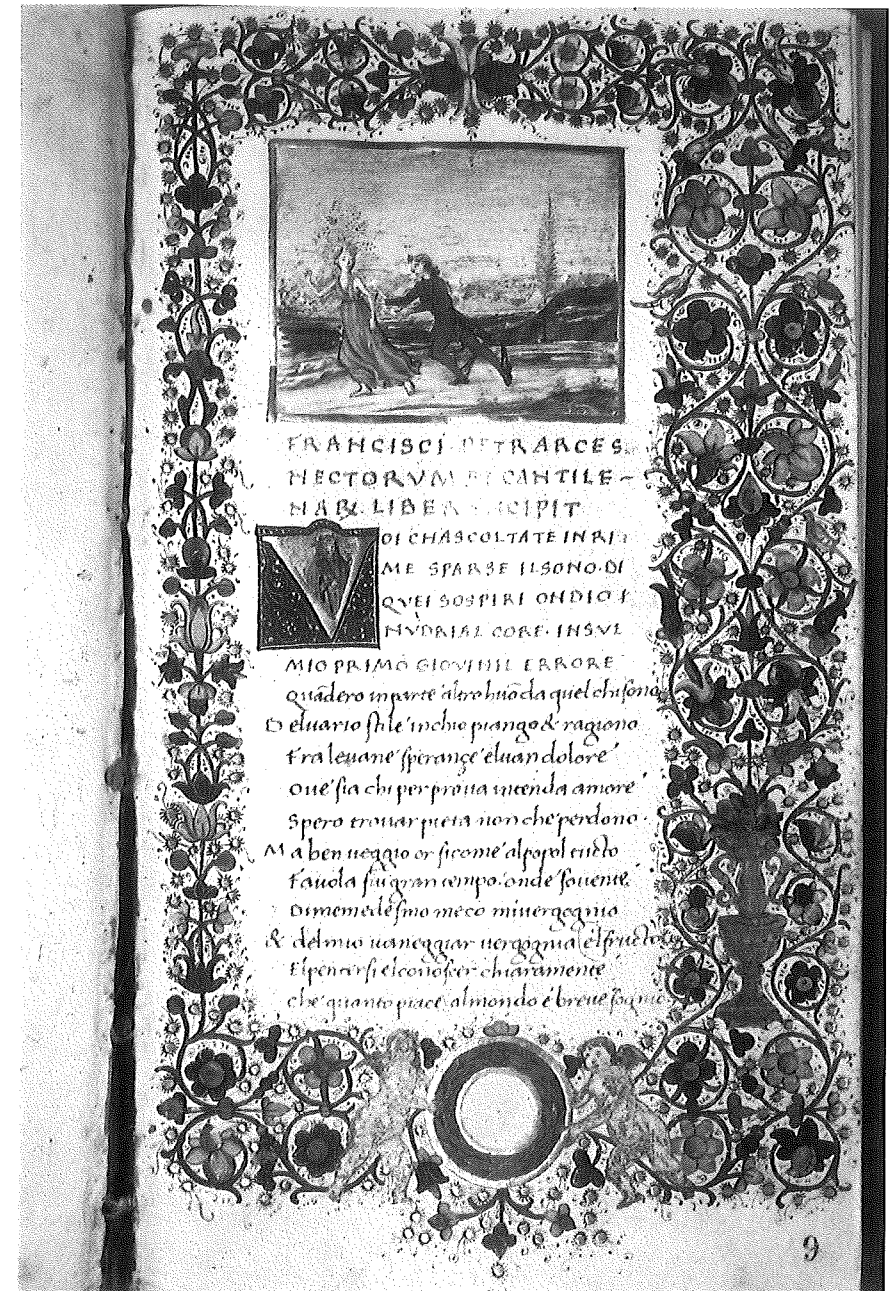 FRANCISCI PETRARCE S
NECTORVM ET CANTILE-
NAR LIBER INCIPIT
VOI CHASCOLTATE IN RI
ME SPARSE IL SONO DI
QVEI SOSPIRI ONDIO
NVDRIAL CORE INSVL
MIO PRIMO GIOVINIL ERRORE
Quādero in parte altro huō da quel chi sono
D eluario stile inchio piango & ragiono
Fra levane sperançe eluan dolore
Ove sia chi per prova intenda amore
Spero trovar pieta non che perdono.
M a ben veggio or sicome alpopol tucto
Favola fui gran tempo. onde sovente.
Dimemedesmo meco mivergognio
& delmio vaneggiar vergognia elfructo
Elpentersi elconoscer chiaramente
che quanto piace almondo è breve sognio
9